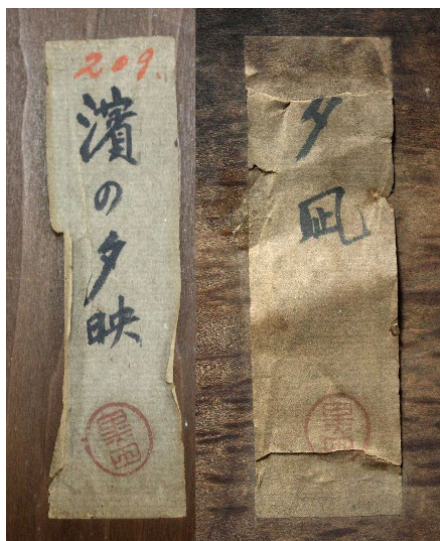 209.
濱の夕映
夕凪